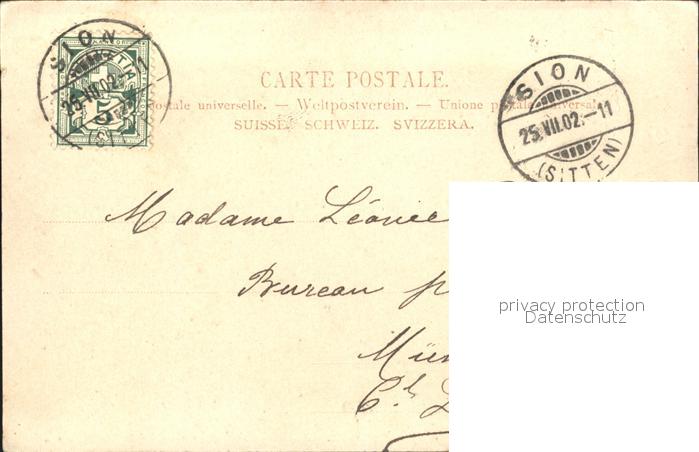 SION
25.VII.02.-11
HELVETIA
5
CARTE POSTALE.
postale universelle. — Weltpostverein. — Unione postale universale
SUISSE. SCHWEIZ. SVIZZERA.
SION
25.VII.02.-11
(SITTEN)
Madame Léonie
Bureau p
Mün
privacy protection
Datenschutz